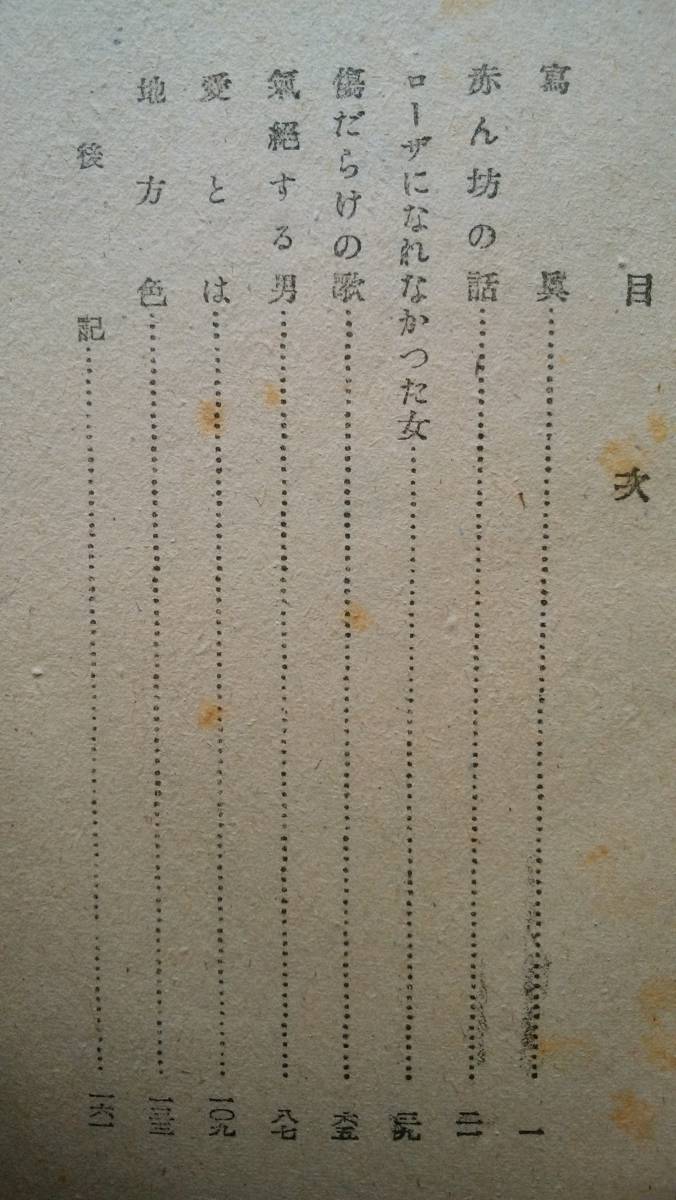 目次
寫眞……一
赤ん坊の話……二一
ローザになれなかつた女……
傷だらけの歌……六五
氣絕する男……八七
愛とは……一〇九
地方色……
後記……一六一